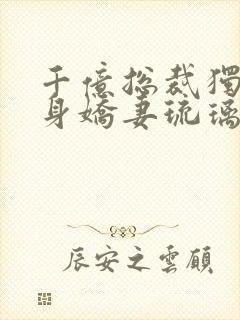 千億總裁獨
身嬌妻琉璃
辰安之雲頎